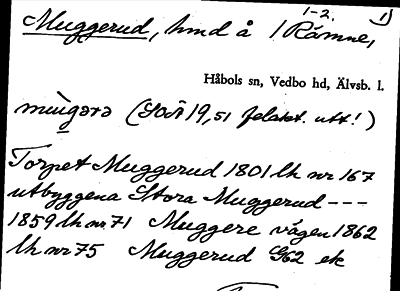 1-2. 1)
Muggerud, hmd å 1 Rämne,
Håbols sn, Vedbo hd, Älvsb. l.
mùgərə (SOÄ 19,51 felakt. utt!)
Torpet Muggerud 1801 lh nr 167
utbyggena Stora Muggerud ---
1859 lh nr 71 Muggere vägen 1862
lh nr 75 Muggerud G62 ek